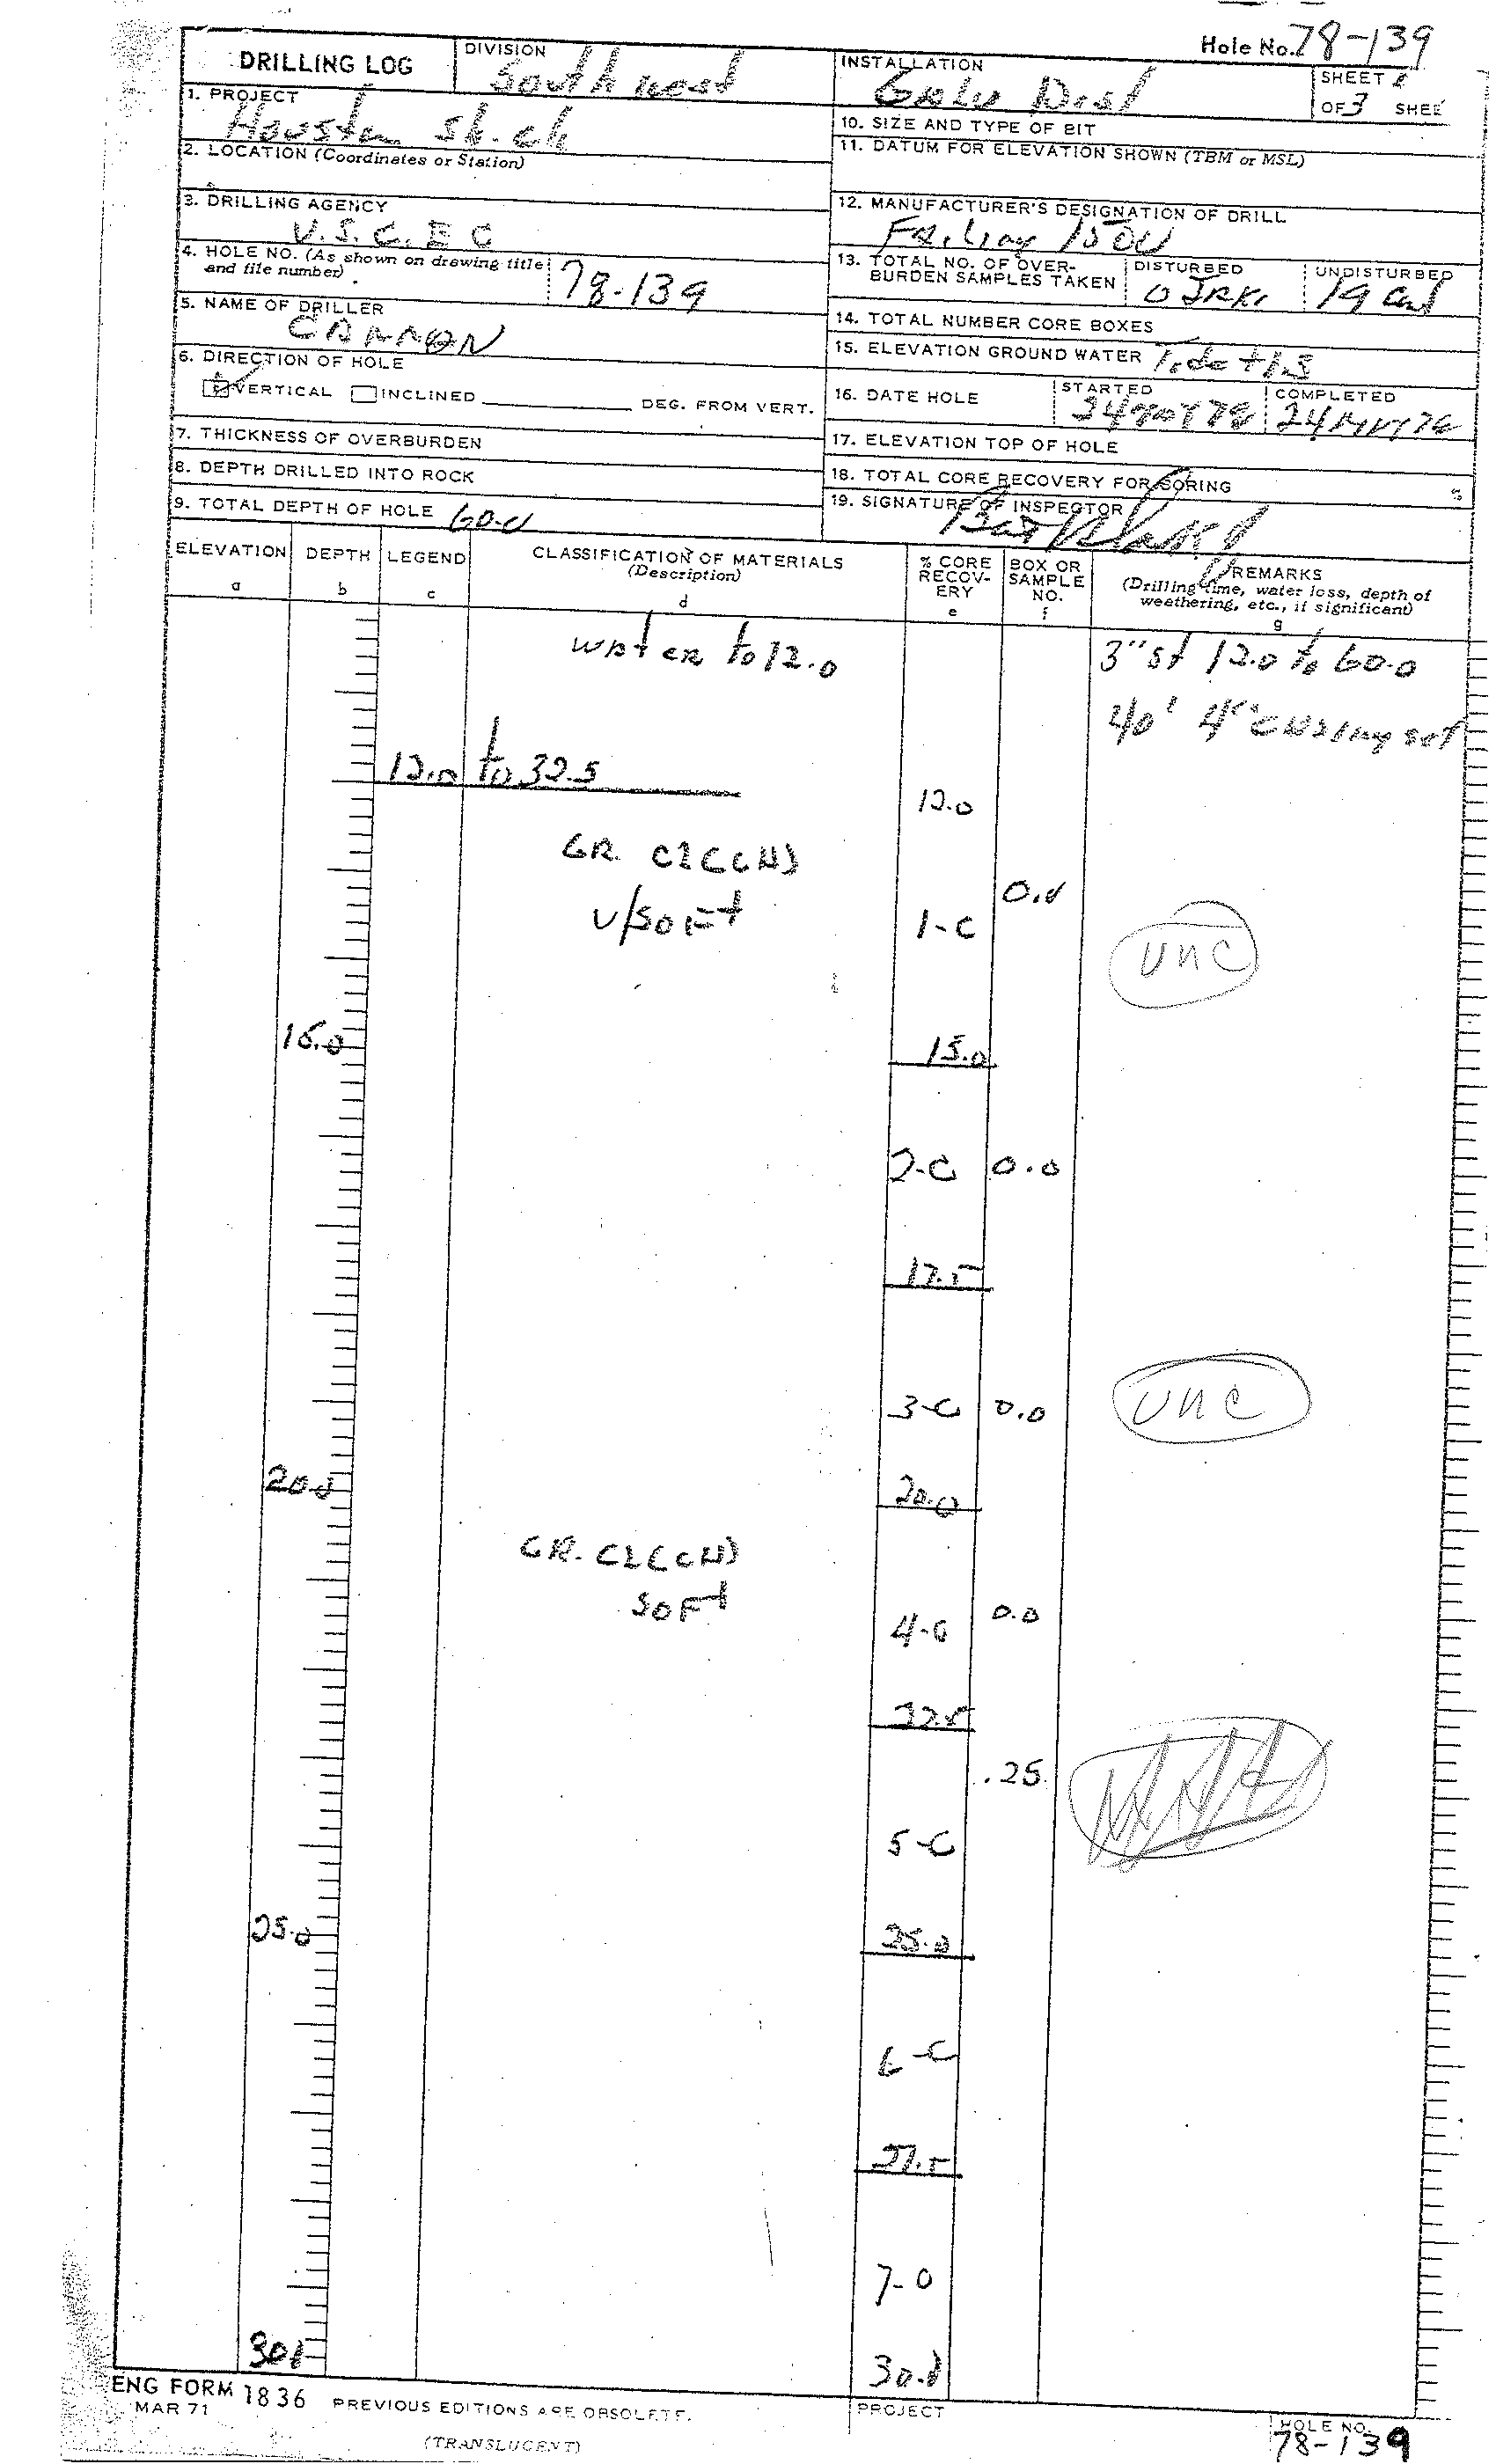 Hole No. 78-139
DRILLING LOG
DIVISION
Southwest
INSTALLATION
Galv Dist
SHEET 1
OF 3 SHEE
1. PROJECT
Houston sh. ch
10. SIZE AND TYPE OF BIT
2. LOCATION (Coordinates or Station)
11. DATUM FOR ELEVATION SHOWN (TBM or MSL)
3. DRILLING AGENCY
U.S.C.E C
12. MANUFACTURER'S DESIGNATION OF DRILL
Failing 1500
4. HOLE NO. (As shown on drawing title
and file number)
78-139
13. TOTAL NO. OF OVER-
BURDEN SAMPLES TAKEN
DISTURBED
0 JRKs
UNDISTURBED
19 Cn1
5. NAME OF DRILLER
CANNON
14. TOTAL NUMBER CORE BOXES
15. ELEVATION GROUND WATER Tide +1.5
6. DIRECTION OF HOLE
VERTICAL INCLINED DEG. FROM VERT.
16. DATE HOLE
STARTED
24 NOV 78
COMPLETED
24 NOV 78
7. THICKNESS OF OVERBURDEN
17. ELEVATION TOP OF HOLE
8. DEPTH DRILLED INTO ROCK
18. TOTAL CORE RECOVERY FOR BORING %
9. TOTAL DEPTH OF HOLE 60.0
19. SIGNATURE OF INSPECTOR
ELEVATION
a
DEPTH
b
LEGEND
c
CLASSIFICATION OF MATERIALS
(Description)
d
% CORE
RECOV-
ERY
e
BOX OR
SAMPLE
NO.
f
REMARKS
(Drilling time, water loss, depth of
weathering, etc., if significant)
g
WATER to 12.0
3" st 12.0 to 60.0
40' 4" casing set
12.0 to 32.5
12.0
GR. CL(CH)
V/SOFT
0.0
1-C
UNC
15.0
15.0
2-C 0.0
17.5
3-C 0.0
UNC
20.0
20.0
GR. CL(CH)
SOFT
4-C 0.0
22.5
.25
5-C
25.0
25.0
6-C
27.5
7-C
30.0
30.0
ENG FORM 1836
MAR 71
PREVIOUS EDITIONS ARE OBSOLETE.
(TRANSLUCENT)
PROJECT
HOLE NO.
78-139